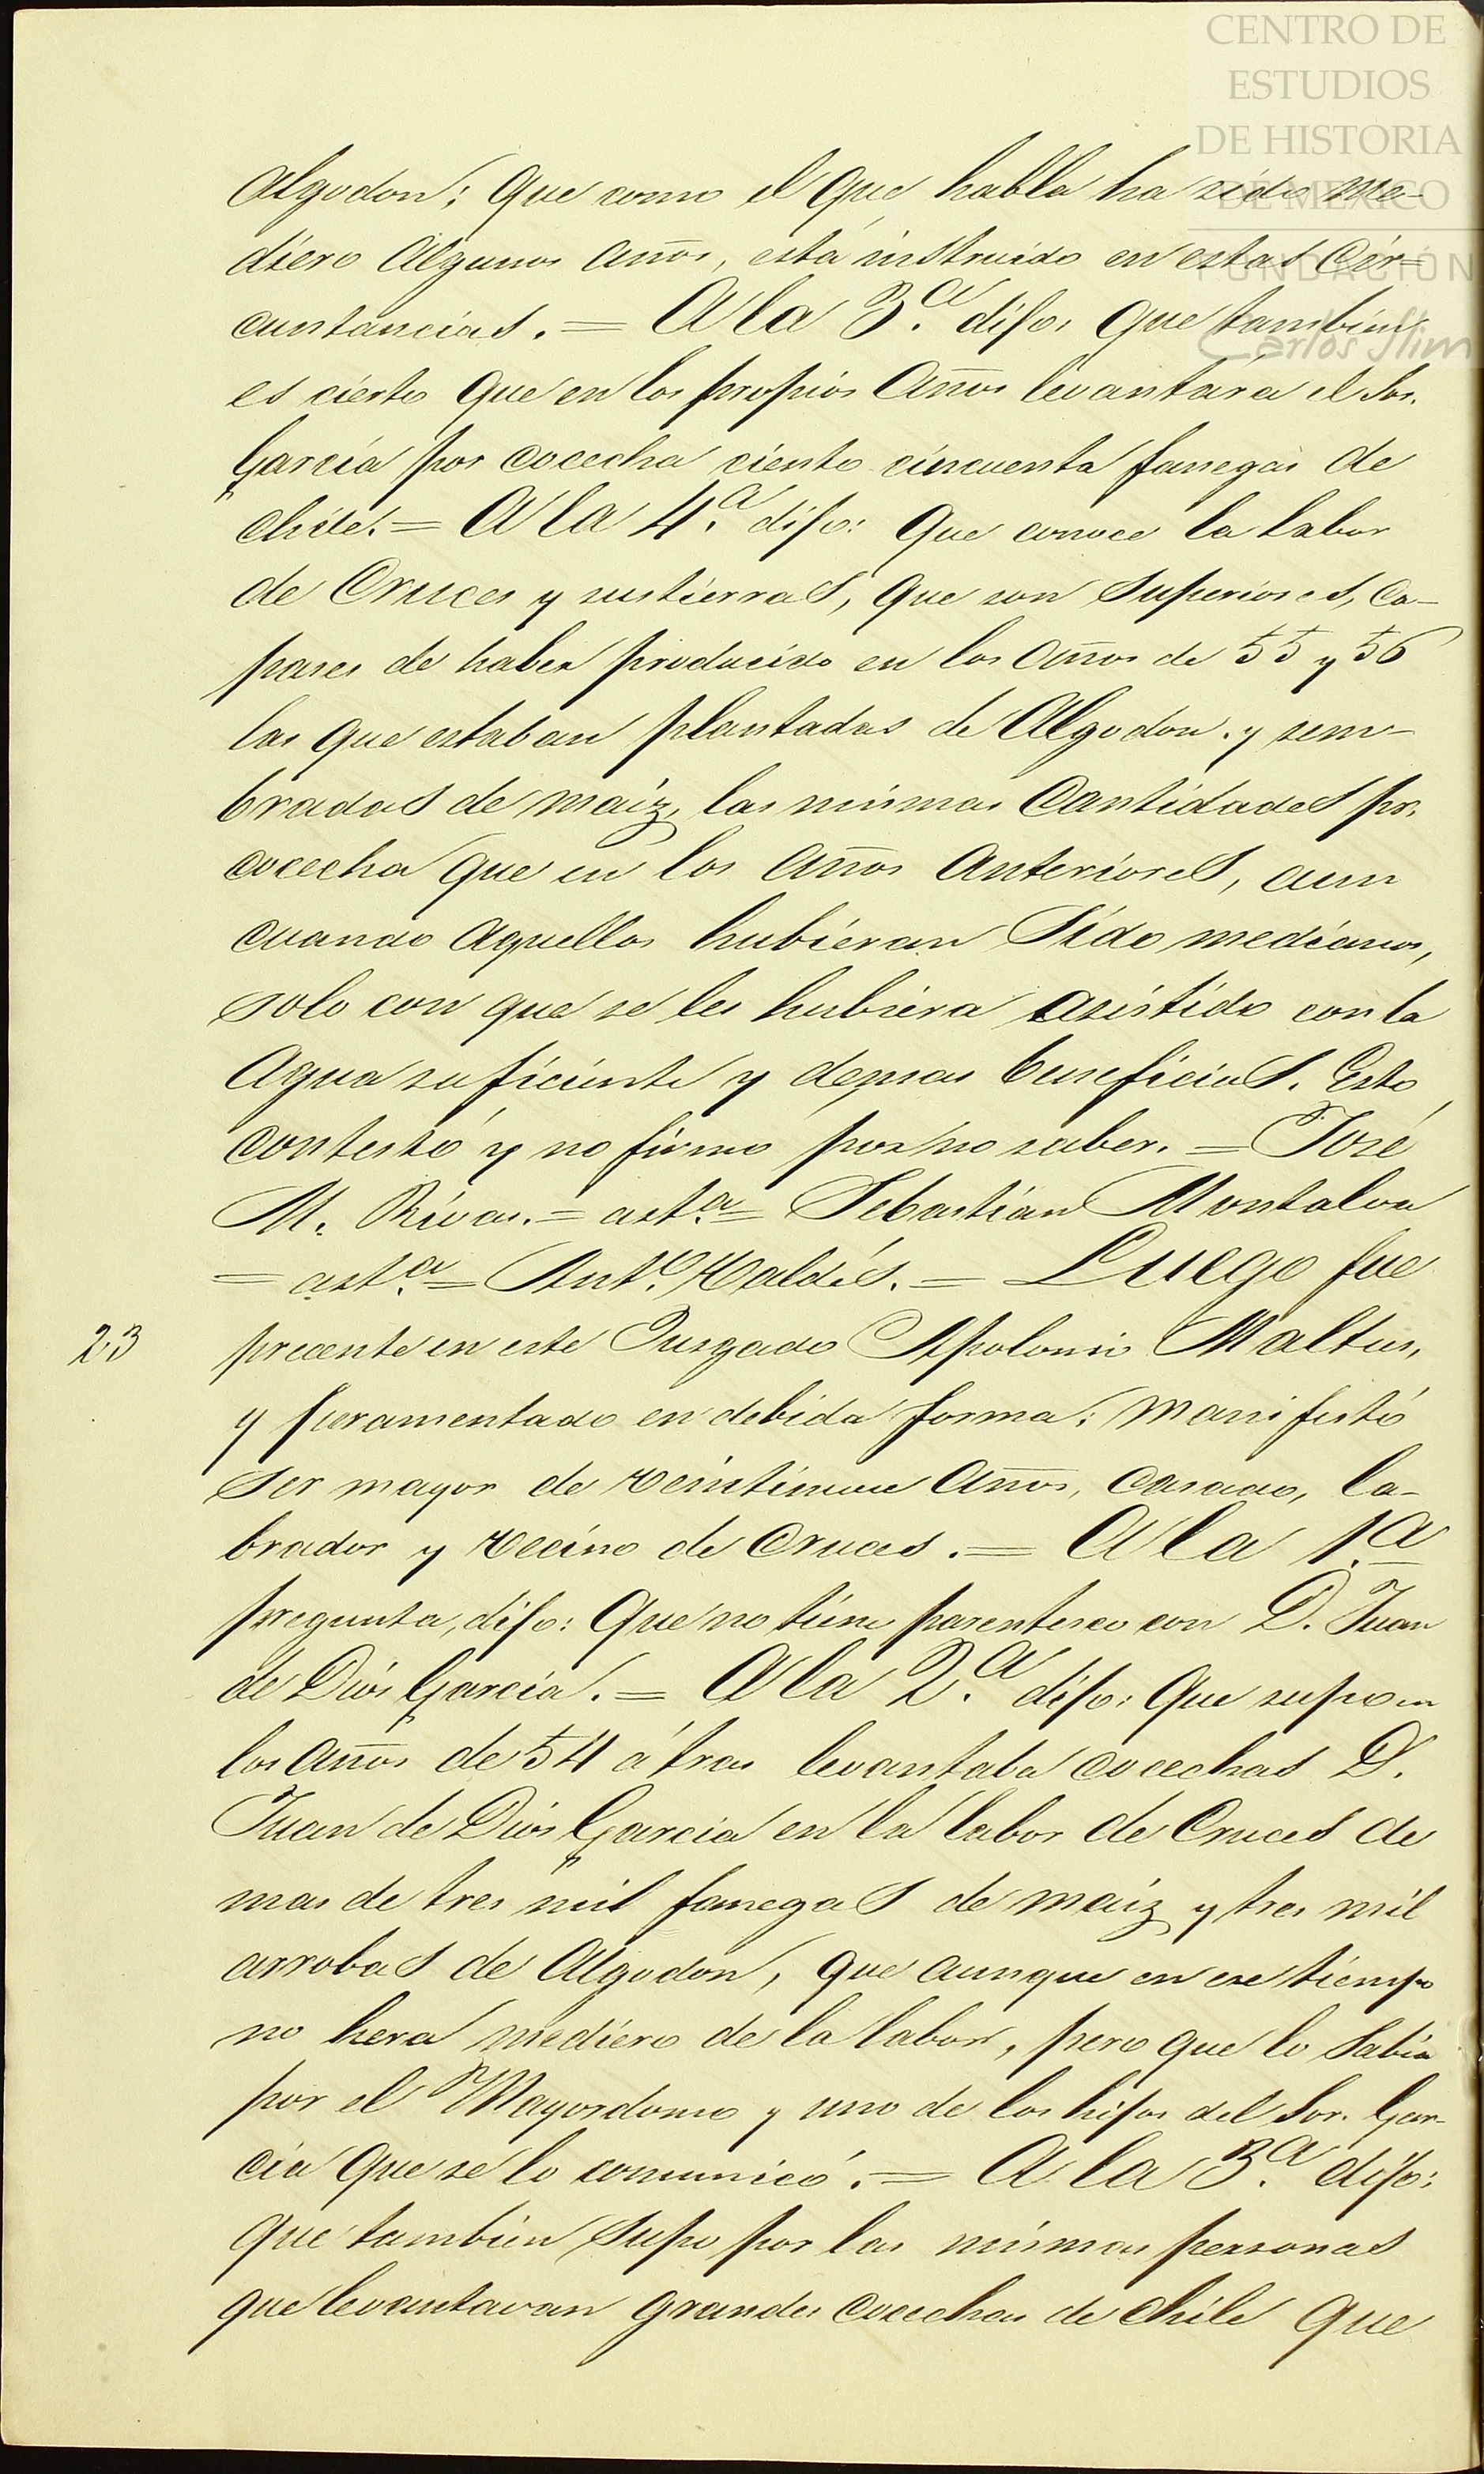 CENTRO DE
ESTUDIOS
DE HISTORIA
DE MÉXICO
FUNDACIÓN
Carlos Slim
Algodon; Que como el Que habla ha sido me-
diero Algunos años, está instruido en estas Cir-
cuntancias. = A la 3.ª dijo: Que tambien
es cierto Que en los propios Años levantára el Sor.
García por cocecha ciento cincuenta fanegas de
chile. = A la 4.ª dijo: Que conoce la labor
de Cruces y sus tierras, Que son Superiores, Ca-
paces de haber producido en los Años de 55 y 56
las Que estaban plantadas de Algodon y sem-
bradas de maiz, las mismas Cantidades pr.
cocecha Que en los Años Anteriores, aun
cuando Aquellos hubieran Sido medianos,
solo con que se les hubiera asistido con la
Agua suficiente y demas beneficios. Esto
contestó y no firmó por no saber. = José
M. Rivas. = ast.ª = Sebastián Montalvo
= ast.ª = Ant.º Valdés. = Luego fue
23 precente en este Jusgado Apolonio Maltus,
y juramentado en debida forma; Manifestó
Ser mayor de veintinueve Años, Casado, la-
brador y vecino de Cruces. = A la 1.ª
pregunta, dijo: Que no tiene parentesco con D. Juan
de Dios García. = A la 2.ª dijo: Que supo en
los Años de 54 á tras levantaba cocechas D.
Juan de Dios García en la labor de Cruces de
mas de tres mil fanegas de maiz y tres mil
arrobas de Algodon, Que aunque en ese tiempo
no hera mediero de la labor, pero que lo Sabia
por el Mayordomo y uno de los hijos del Sor. Gar-
cía Que se lo comunicó. = A la 3.ª dijo:
Que tambien Supo por las mismas personas
que levantavan grandes Cocechas de chile Que